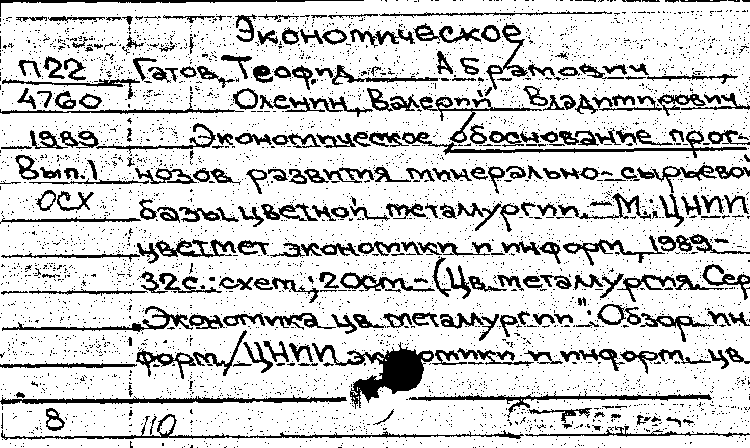 Экономическое
П22 Гатов, Теофил Абрамович,
4760 Оленин, Валерий Владимирович
1989 Экономическое обоснование прог-
Вып.1 нозов развития минерально-сырьевой
ОСХ базы цветной металлургии.-М.:ЦНИИ
цветмет экономики и информ, 1989-
32с.:схем.;20см-(Цв. металлургия. Сер
"Экономика цв металлургии": Обзор ин-
форм./ЦНИИ экономики и информ. цв.
8 110